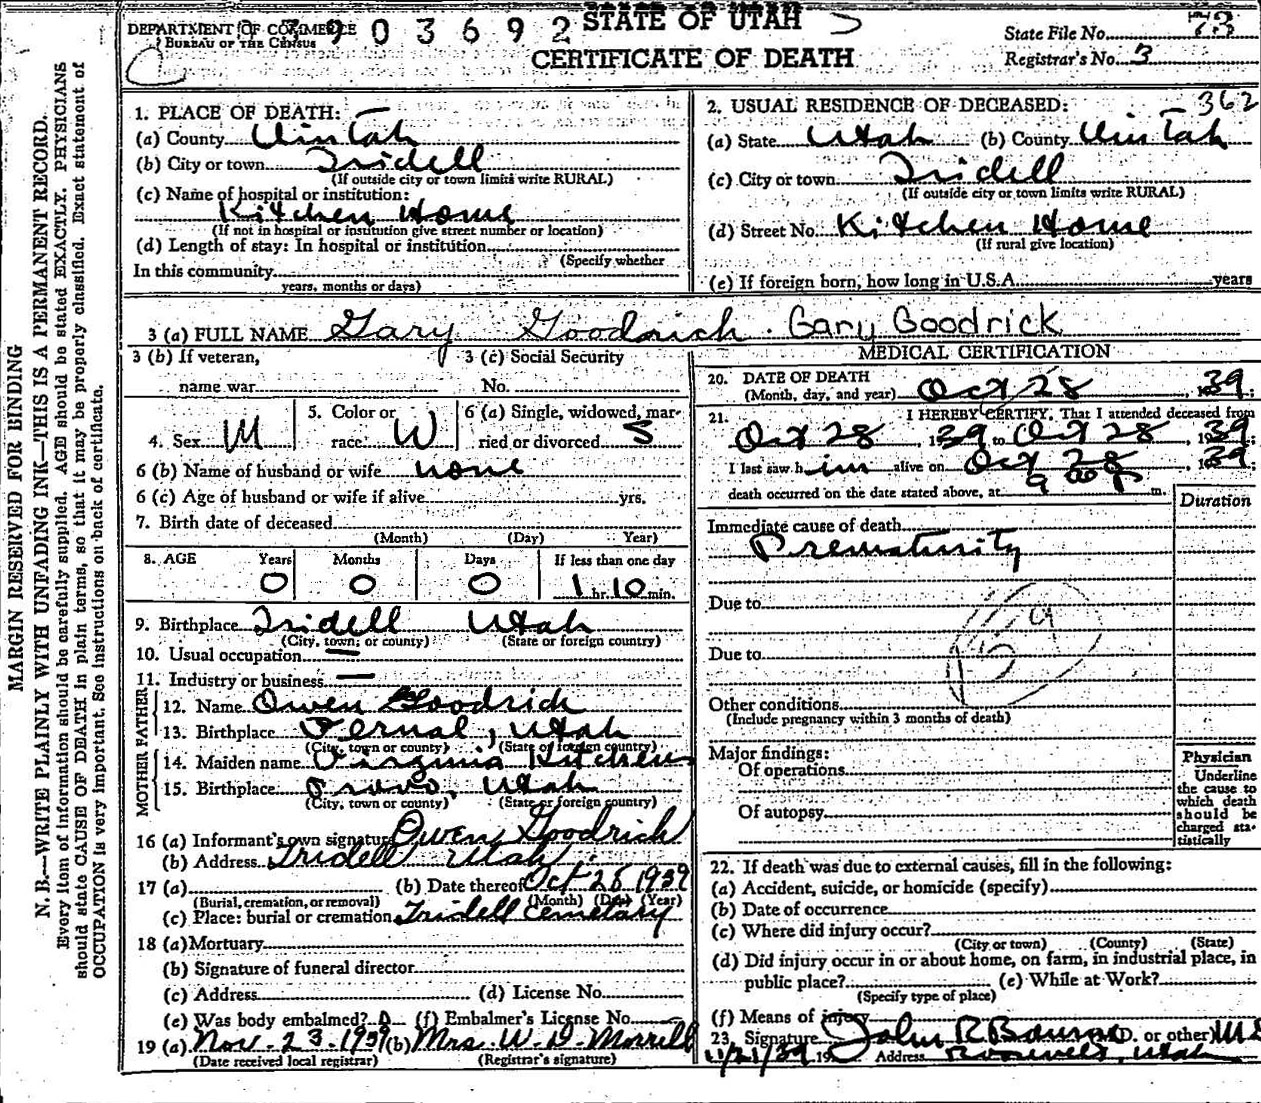 MARGIN RESERVED FOR BINDING
N. B.—WRITE PLAINLY WITH UNFADING INK—THIS IS A PERMANENT RECORD.
Every item of information should be carefully supplied. AGE should be stated EXACTLY. PHYSICIANS
should state CAUSE OF DEATH in plain terms, so that it may be properly classified. Exact statement of
OCCUPATION is very important. See instructions on back of certificate.
DEPARTMENT OF COMMERCE
BUREAU OF THE CENSUS
0 3 9 0 3 6 9 2
STATE OF UTAH
CERTIFICATE OF DEATH
State File No. 73
Registrar's No. 3
1. PLACE OF DEATH:
(a) County Uintah
(b) City or town Tridell
(If outside city or town limits write RURAL)
(c) Name of hospital or institution:
Kitchen Home
(If not in hospital or institution give street number or location)
(d) Length of stay: In hospital or institution
(Specify whether
In this community
years, months or days)
2. USUAL RESIDENCE OF DECEASED: 362
(a) State Utah (b) County Uintah
(c) City or town Tridell
(If outside city or town limits write RURAL)
(d) Street No. Kitchen Home
(If rural give location)
(e) If foreign born, how long in U.S.A. years
3 (a) FULL NAME Gary Goodrich. Gary Goodrick
3 (b) If veteran,
name war
3 (c) Social Security
No.
4. Sex M
5. Color or
race W
6 (a) Single, widowed, mar-
ried or divorced S
6 (b) Name of husband or wife none
6 (c) Age of husband or wife if alive yrs.
7. Birth date of deceased
(Month) (Day) Year)
8. AGE Years Months Days If less than one day
0 0 0 1 hr. 10 min.
9. Birthplace Tridell Utah
(City, town, or county) (State or foreign country)
10. Usual occupation —
11. Industry or business —
FATHER
12. Name Owen Goodrich
13. Birthplace Vernal, Utah
(City, town or county) (State or foreign country)
MOTHER
14. Maiden name Virginia Kitchen
15. Birthplace Provo, Utah
(City, town or county) (State or foreign country)
16 (a) Informant's own signature Owen Goodrich
(b) Address Tridell Utah
17 (a) (b) Date thereof Oct 28 1939
(Burial, cremation, or removal) (Month) (Day) (Year)
(c) Place: burial or cremation Tridell Cemetary
18 (a) Mortuary
(b) Signature of funeral director
(c) Address (d) License No.
(e) Was body embalmed? (f) Embalmer's License No.
19 (a) Nov. 23. 1939 (b) Mrs W. D. Morrell
(Date received local registrar) (Registrar's signature)
MEDICAL CERTIFICATION
20. DATE OF DEATH
(Month, day, and year) Oct 28, 39;
21. I HEREBY CERTIFY, That I attended deceased from
Oct 28, 1939 to Oct 28, 1939;
I last saw h im alive on Oct 28, 39
death occurred on the date stated above, at 9 00 P m.
Duration
Immediate cause of death
Prematurity
Due to
Due to
159
Other conditions
(Include pregnancy within 3 months of death)
Major findings:
Of operations
Of autopsy
Physician
Underline
the cause to
which death
should be
charged sta-
tistically
22. If death was due to external causes, fill in the following:
(a) Accident, suicide, or homicide (specify)
(b) Date of occurrence
(c) Where did injury occur?
(City or town) (County) (State)
(d) Did injury occur in or about home, on farm, in industrial place, in
public place? (e) While at Work?
(Specify type of place)
(f) Means of injury
23. Signature John R D. or other M D
11/21/39 19 Address Roosevelt, Utah